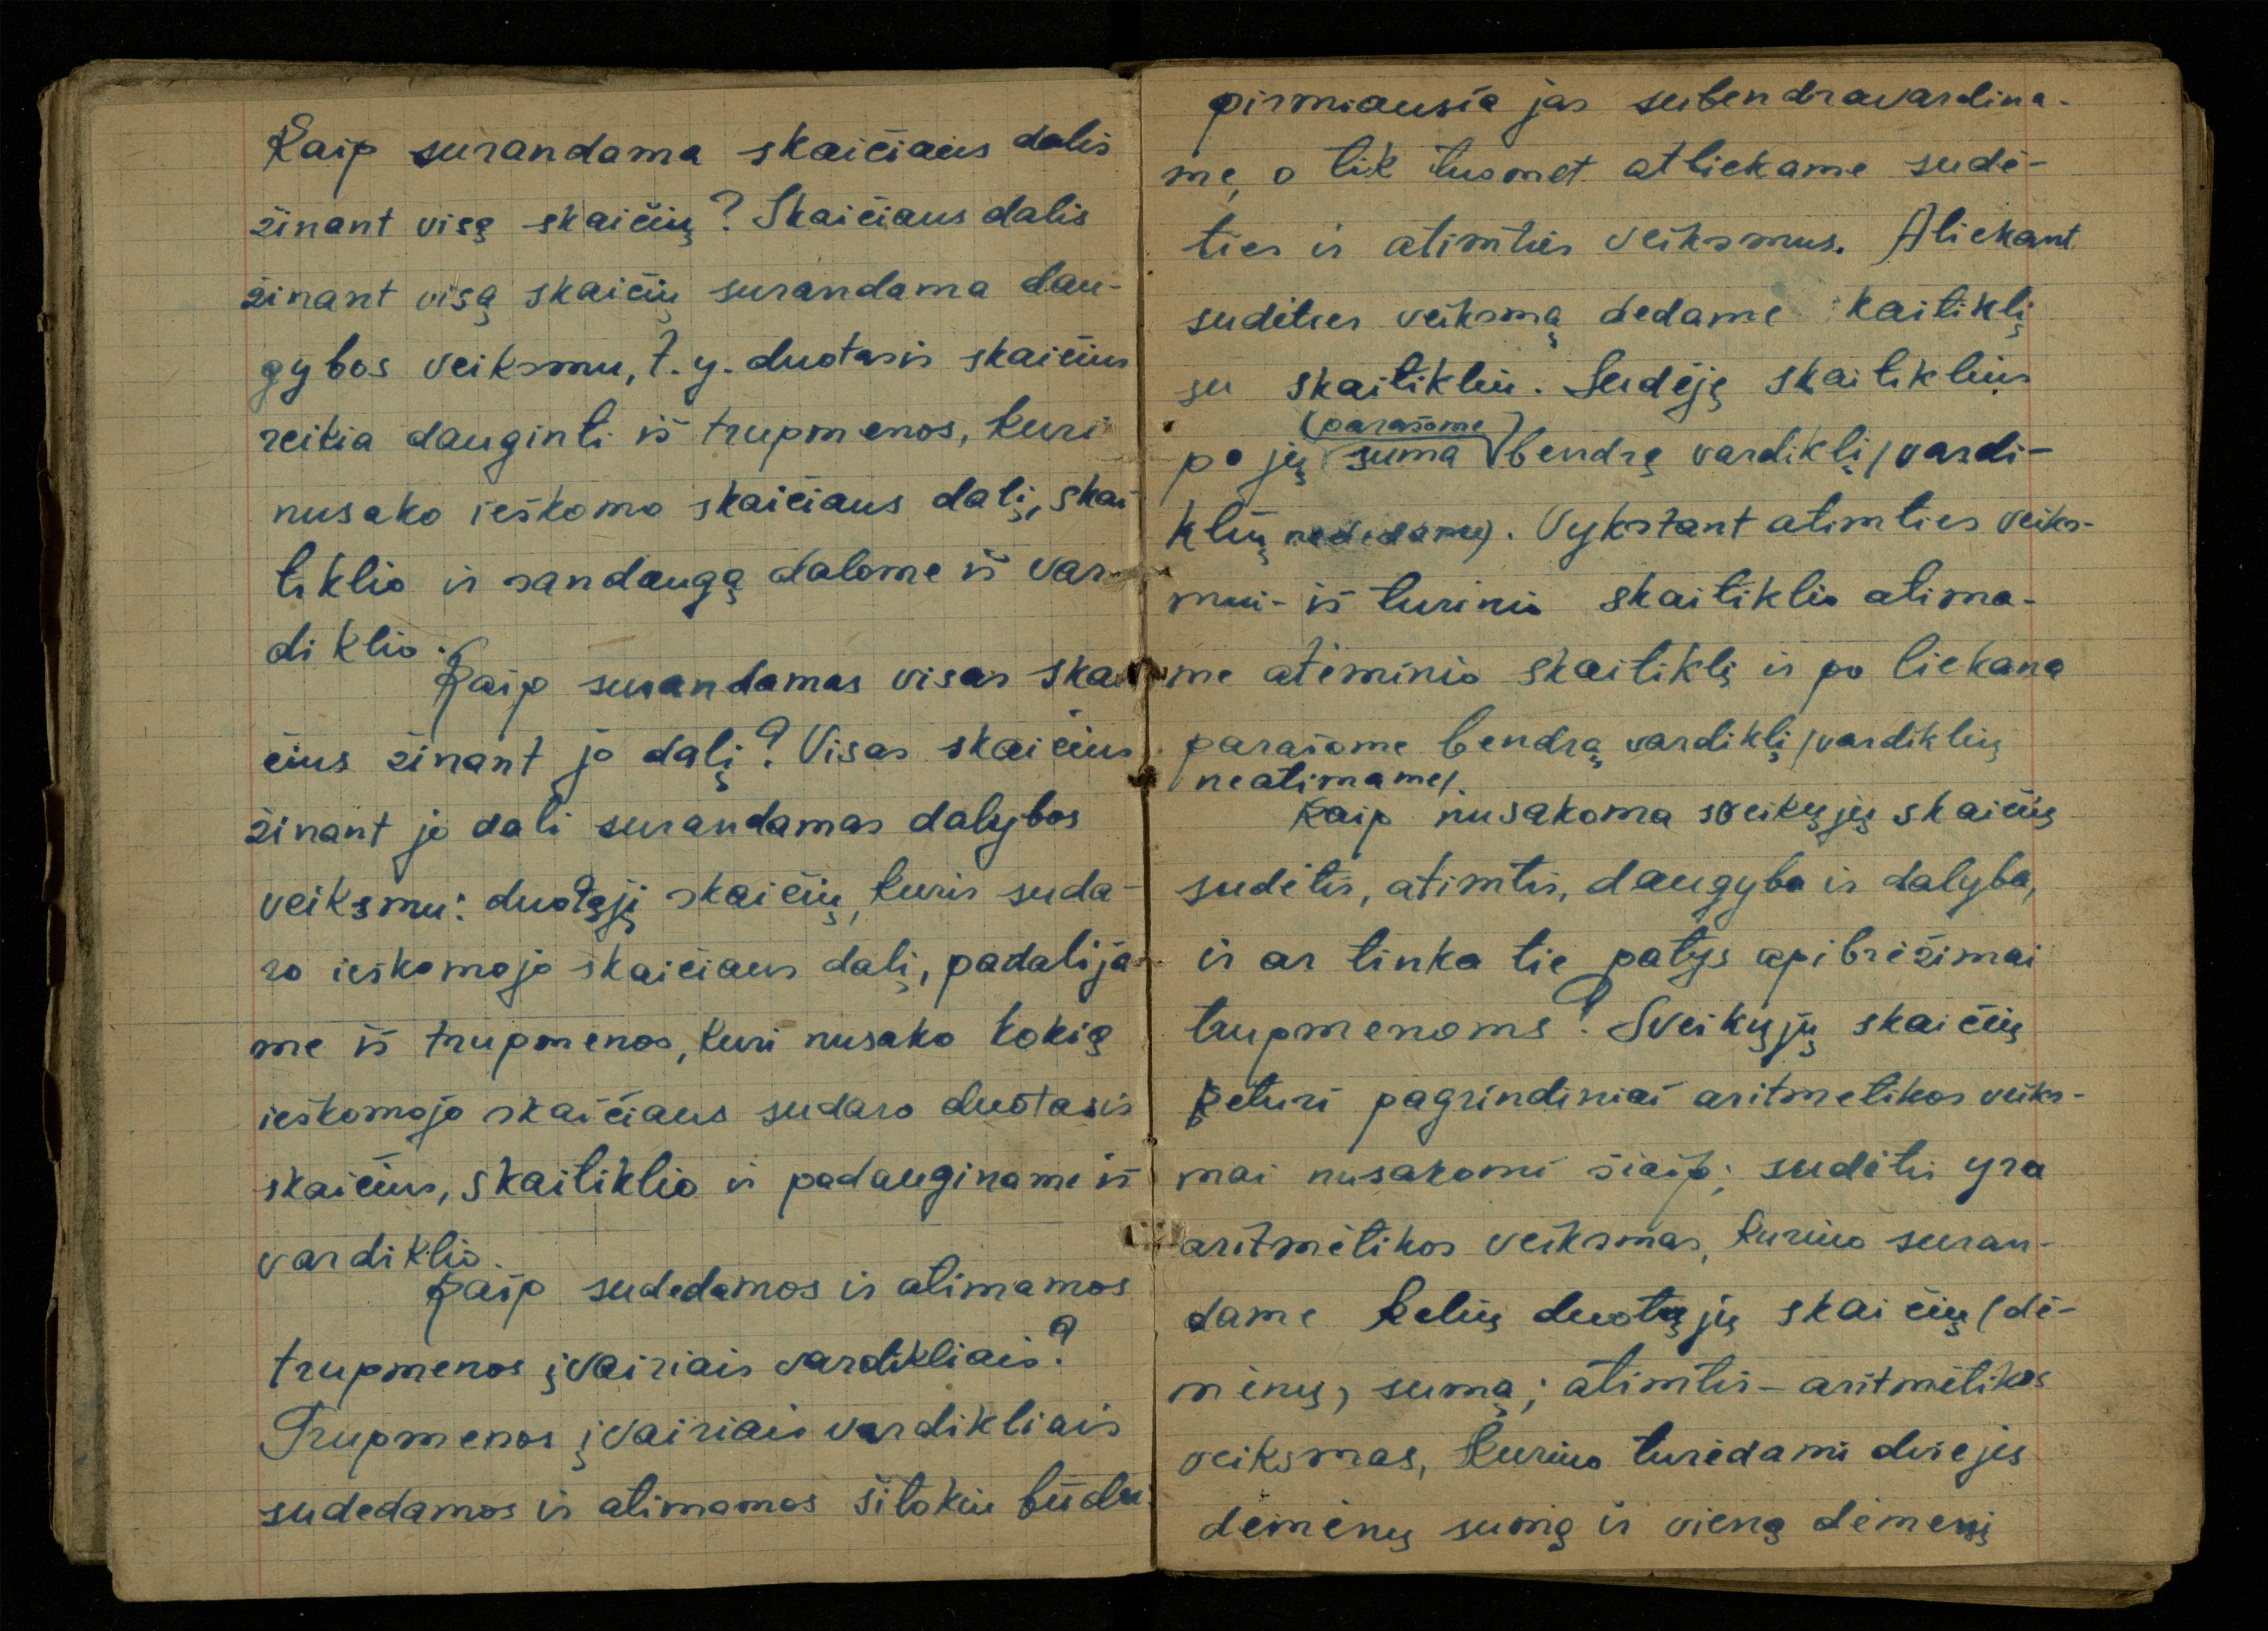 Kaip surandama skaičiaus dalis
žinant visą skaičių? Skaičiaus dalis
žinant visą skaičių surandama dau-
gybos veiksmu, t.y. duotasis skaičius
reikia dauginti iš trupmenos, kuri
nusako ieškomo skaičiaus dalį, skai-
tiklio ir sandaugą dalome iš var-
diklio.
Kaip surandamas visas skai-
čius žinant jo dalį? Visas skaičius
žinant jo dali surandamas dalybos
veiksmu: duotąjį skaičių, kuris suda-
ro ieškomojo skaičiaus dalį, padalija-
me iš trupmenos, kuri nusako kokią
ieškomojo skaičiaus sudaro duotasis
skaičius, skaitiklio ir padauginame iš
vardiklio.
Kaip sudedamos ir atimamos
trupmenos įvairiais vardikliais?
Trupmenos įvairiais vardikliais
sudedamos ir atimamos šitokiu būdu:
pirmiausia jas subendravardina-
me, o tik tuomet atliekame sudė-
ties ir atimties veiksmus. Aliekant
sudėties veiksmą dedame kaitiklį
su skaitikliu. Sudėję skaitiklius
(parašome)
po jų suma bendrą vardiklį /vardi-
klių nededame). Vykstant atimties veiks-
mui - iš turinio skaitiklio atima-
me atėminio skaitiklį ir po liekana
parašome bendrą vardiklį /vardiklių
neatimame/.
Kaip nusakoma sveikųjų skaičių
sudėtis, atimtis, daugyba ir dalyba,
ir ar tinka tie patys apibrėžimai
trupmenoms? Sveikųjų skaičių
keturi pagrindiniai aritmetikos veiks-
mai nusakomi šiaip: sudėtis yra
aritmėtikos veiksmas, kuriuo suran-
dame kelių duotųjų skaičių (dė-
menų) sumą; atimtis - aritmėtikos
veiksmas, kuriuo turėdami dviejų
dėmėnų sumą ir vieną dėmenį